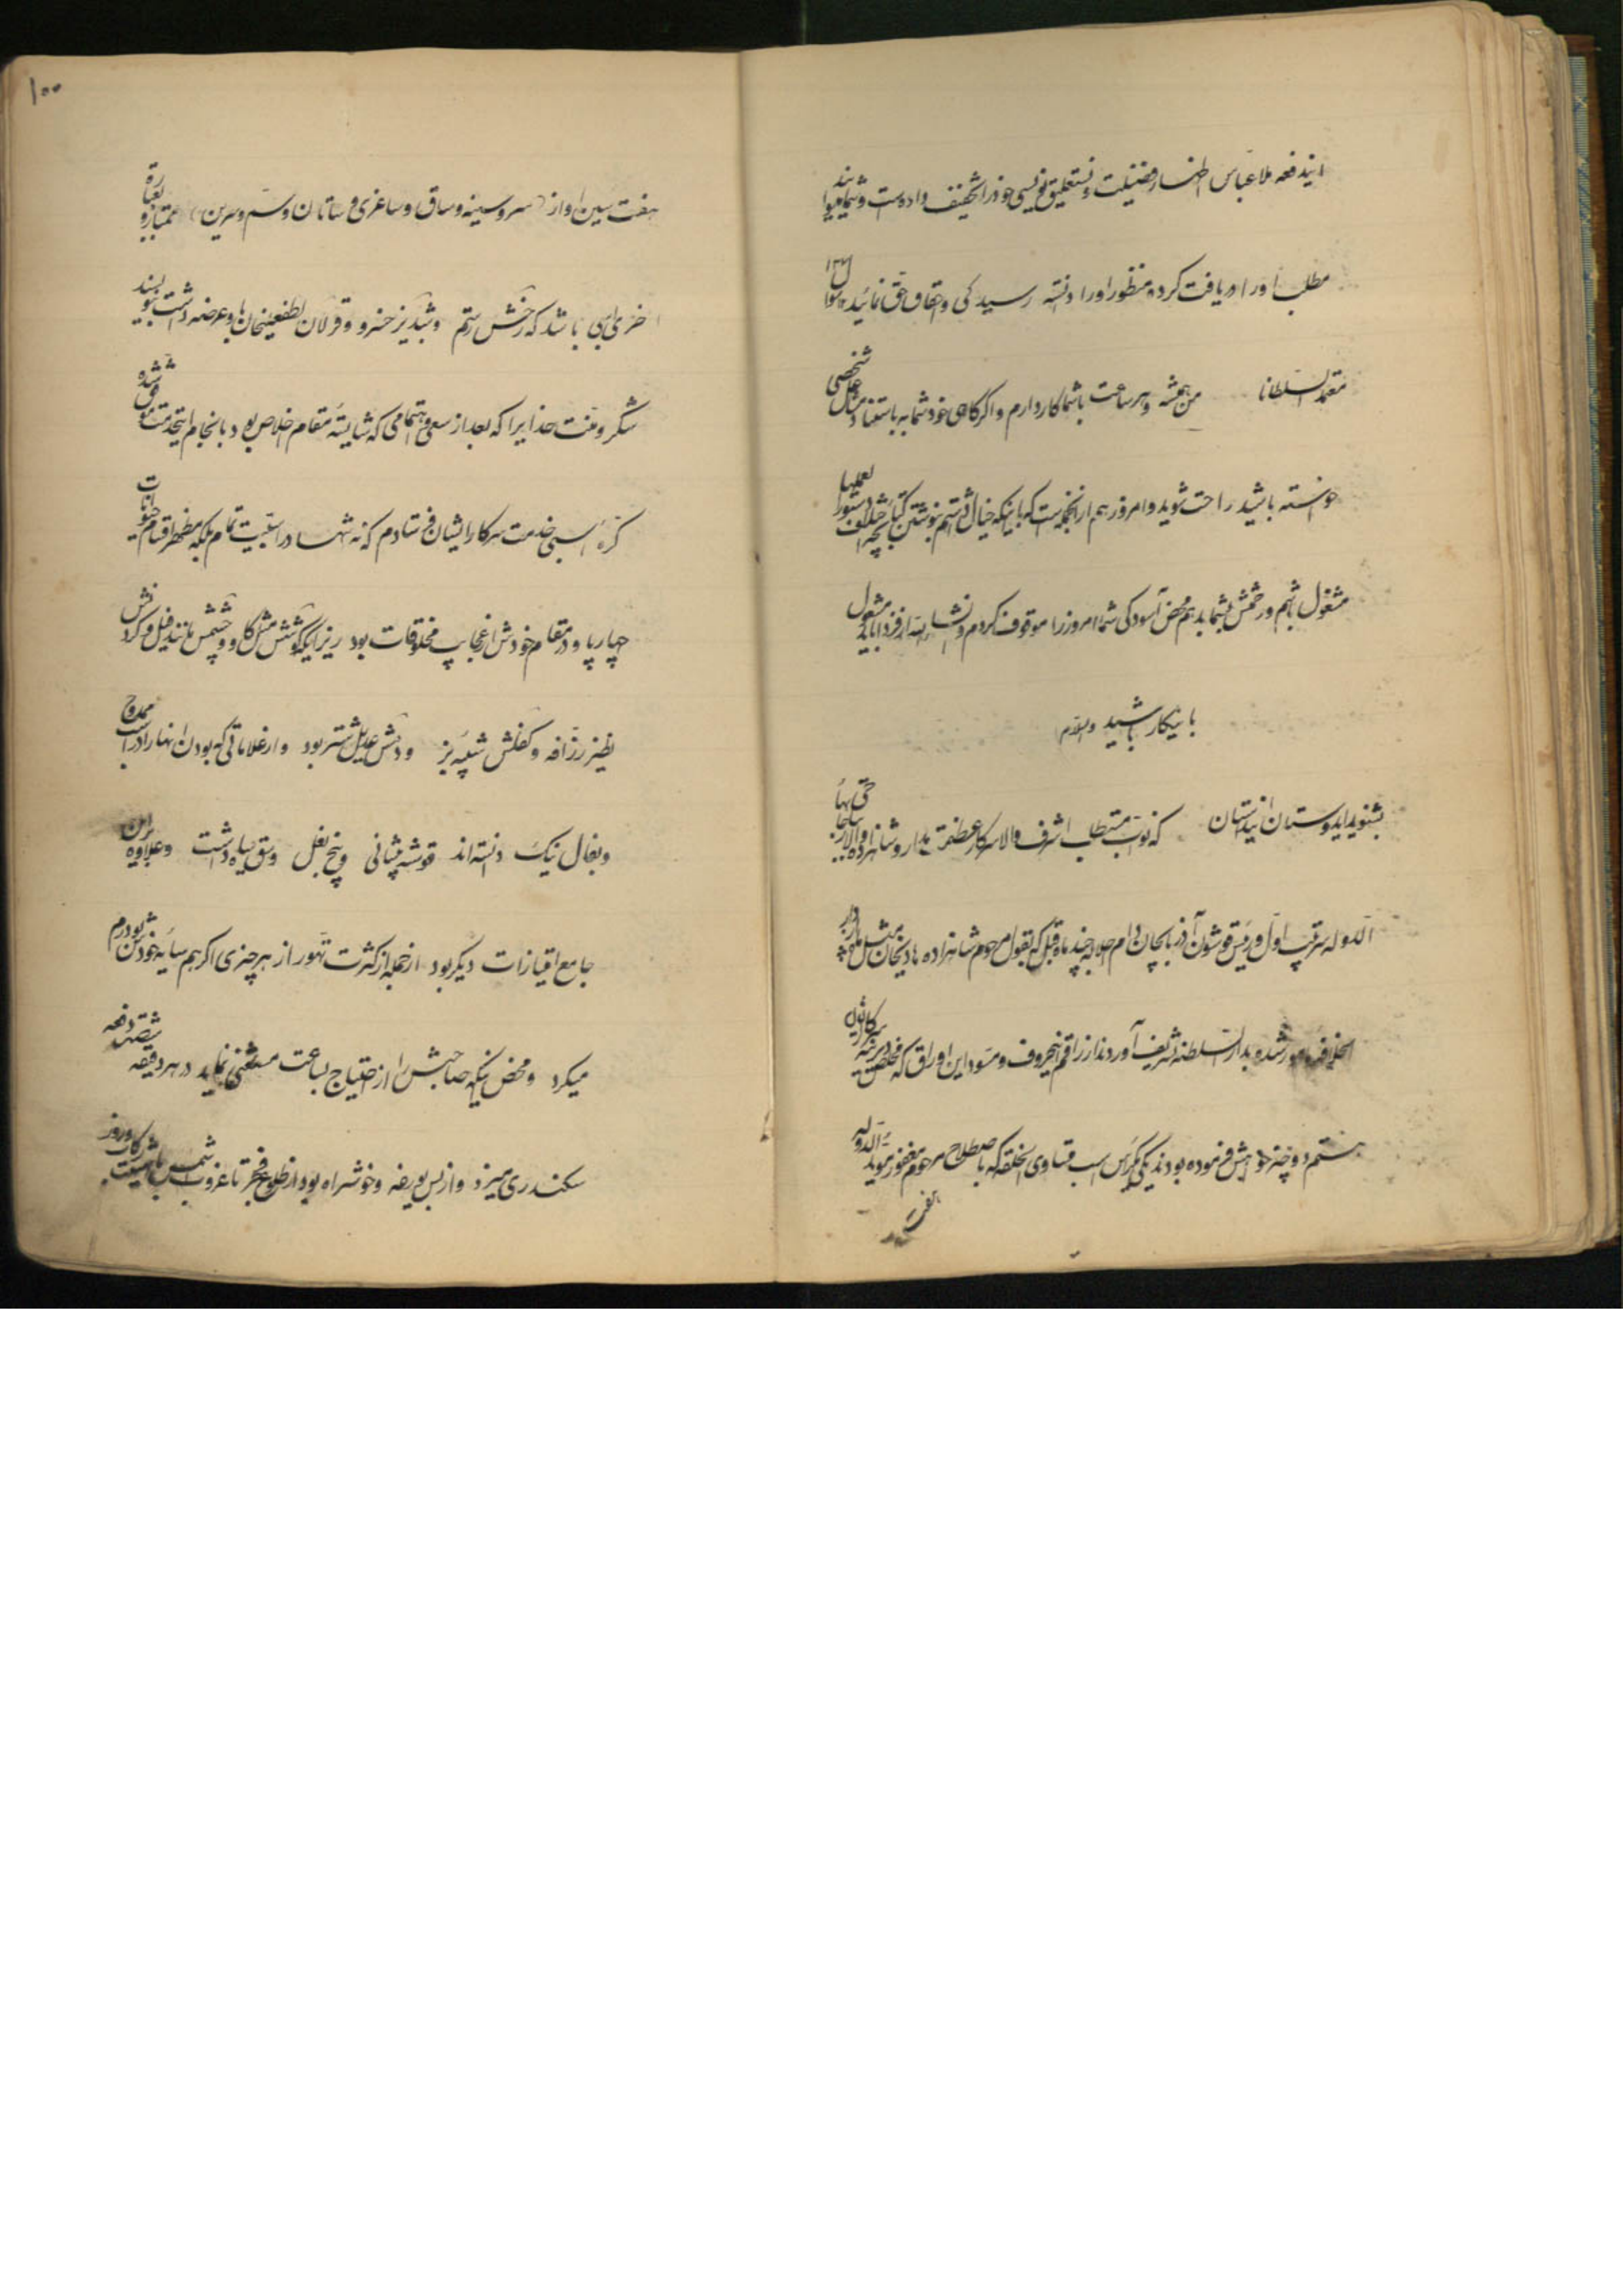 ایندفعه ملا عباس اظهار فضیلت و نستعلیق نویسی خود را تخفیف داده است و شما میتوانید
مطلب او را دریافت کرده منظور او را دانسته رسیدگی و احقاق حق نمائید
معتمد السلطانا من همیشه و هر ساعت با شما کار دارم و اگر گاهی خود شما به شخصی
خواسته باشید راحت شوید و امروز هم از آنجمله است که با اینکه خیال داشتم بنوشتن کتابچه دستور العملها
مشغول باشم و زحمتش بشما بدهم محض آسودگی شما امروز را موقوف کردم و انشاء الله از فردا باید مشغول
باینکار باشید والسلام
بشنوید ایدوستان این داستان که نواب مستطاب اشرف والا سرکار عظمت مدار و شاهزاده والاتبار
الدوله سرتیپ اول و رئیس قوشون آذربایجان دام اجلاله چند ماه قبل که بقول مرحوم شاهزاده
الخلافه مأمور شده بدار السلطنه تشریف آوردند از راقم این حروف و مسود این اوراق که مخلص دیرینه سرکار ایشان
هستم دو چیز خواهش فرموده بودند یکی کره اسب متساوی الخلقه که باصطلاح مرحوم مغفور مؤید الدوله
هفت
۱۰۰
هفت سین او از (سر و سینه و ساق و ساغری و ساتان و سم و سرین) ممتاز و بعبارة
اخری اسبی باشد که رخش رستم و شبدیز خسرو و قزلان لطفعلیخان باو عریضه
شکر و منت خدایرا که بعد از سعی و اهتمامی که شایستهٔ مقام اخلاص بود بانجام اینخدمت موفق شده
کره اسبی خدمت سرکار ایشان فرستادم که نه تنها در اسبیت تمام بلکه مظهر اقسام حیوانات
چهارپا و در مقام خودش از عجایب مخلوقات بود زیرا که گوشش مثل گاو و چشمش مانند فیل و گردنش
نظیر زرافه و کفلش شبیه بز و دمش عدیل شتر بود و از علاماتی که بودن انها را در اسب ممدوح
و بفال نیک دانسته‌اند قوشه پیشانی و پنج نعل و سق سیاه داشت و علاوه براین
جامع امتیازات دیگر بود از جمله از کثرت تهور از هر چیزی اگر هم سایهٔ خودش بود رم
میکرد و محض اینکه صاحبش را از احتیاج بساعت مستغنی نماید در هر دقیقه شصت دفعه
سکندری میزد و از بس و خوشراه بود از طلوع فجر تا غروب شمس